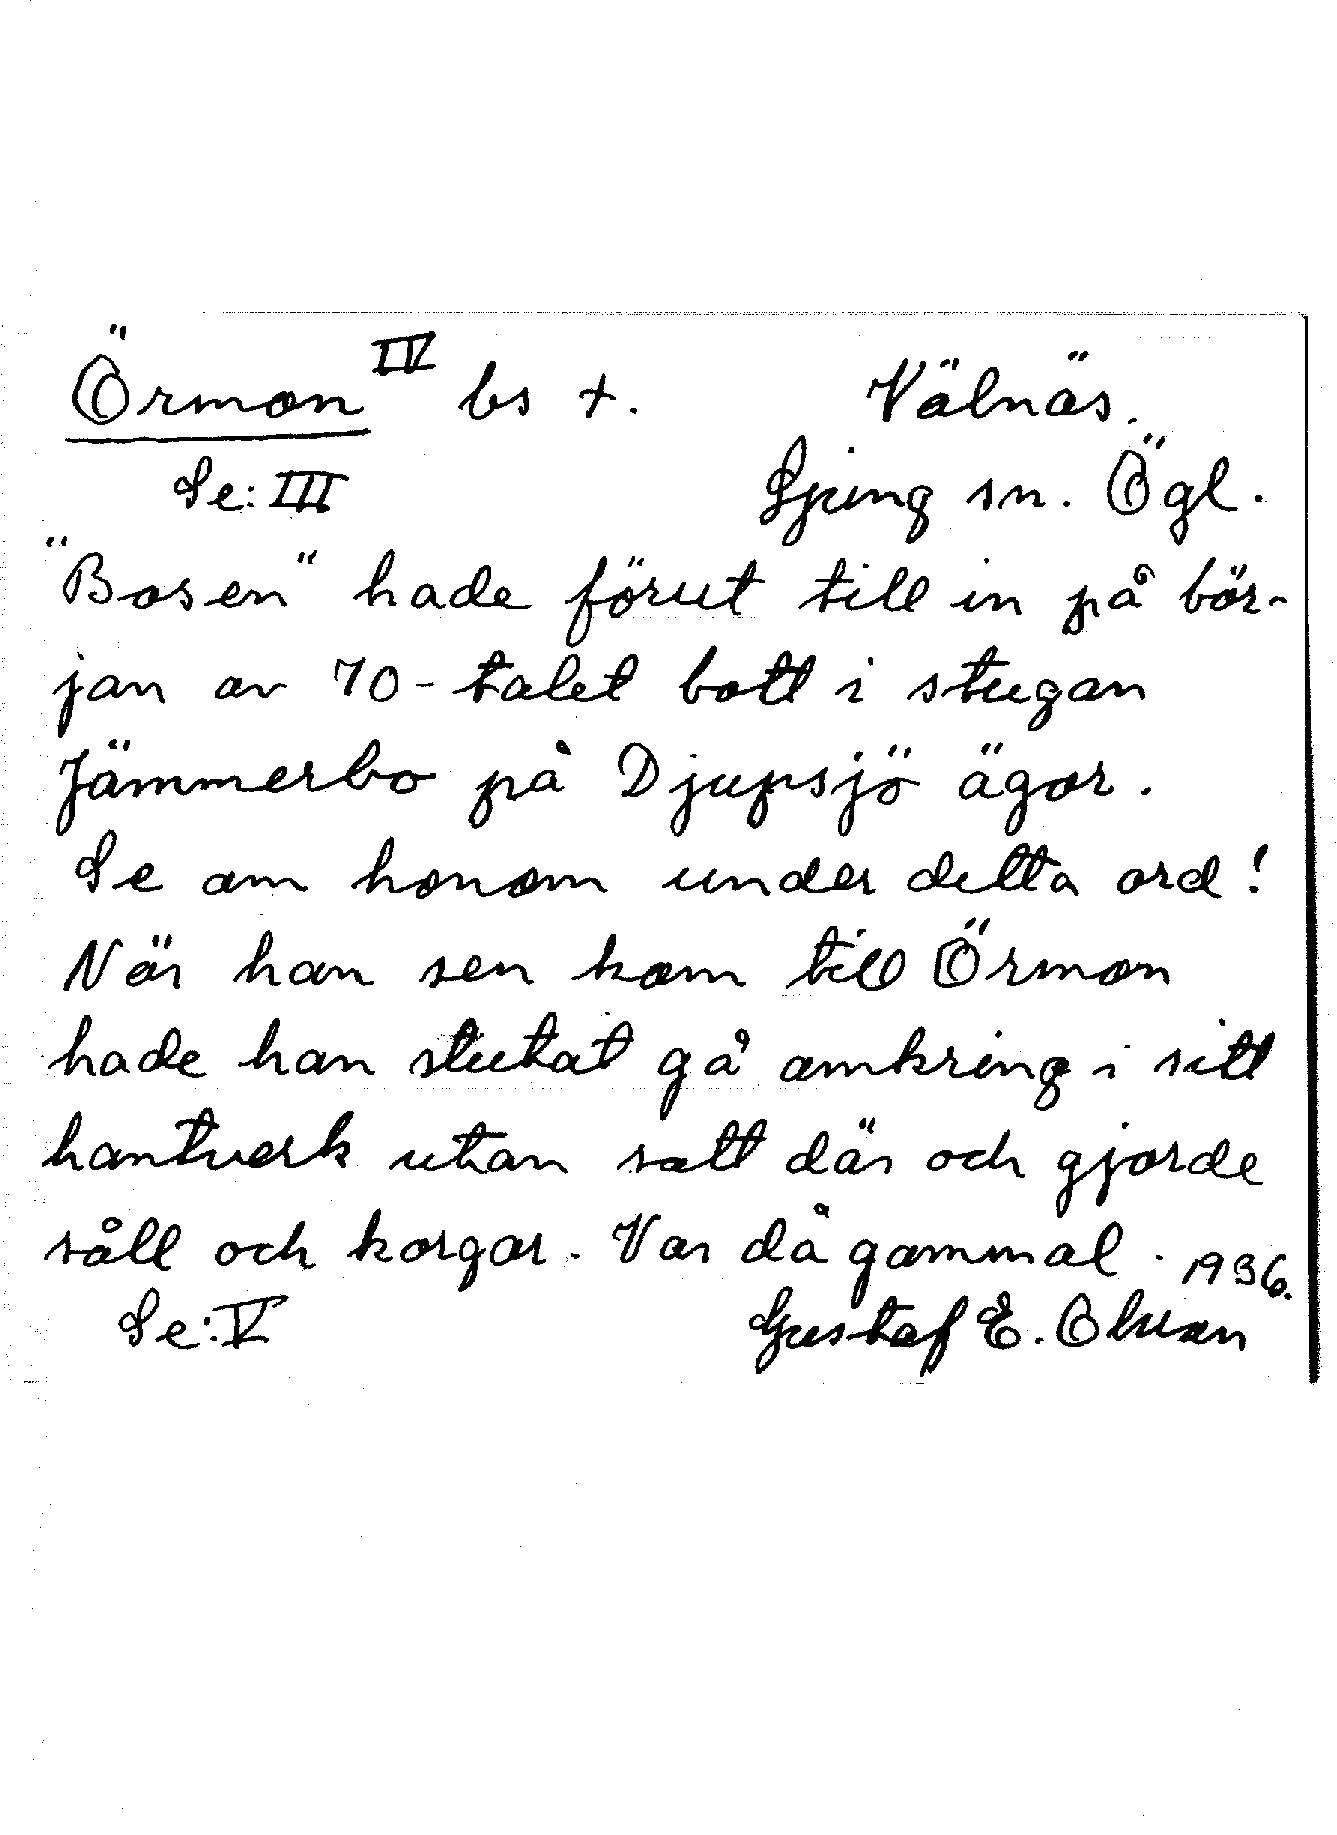 Örmon IV bs +. Välnäs.
Se: III Ljung sn. Ögl.
"Bosen" hade förut till in på bör-
jan av 70-talet bott i stugan
Jämmerbo på Djupsjö ägor.
Se om honom under detta ord!
När han sen kom till Örmon
hade han slutat gå omkring i sitt
hantverk utan satt där och gjorde
såll och korgar. Var då gammal. 1936.
Se: V Gustaf E. Olsson